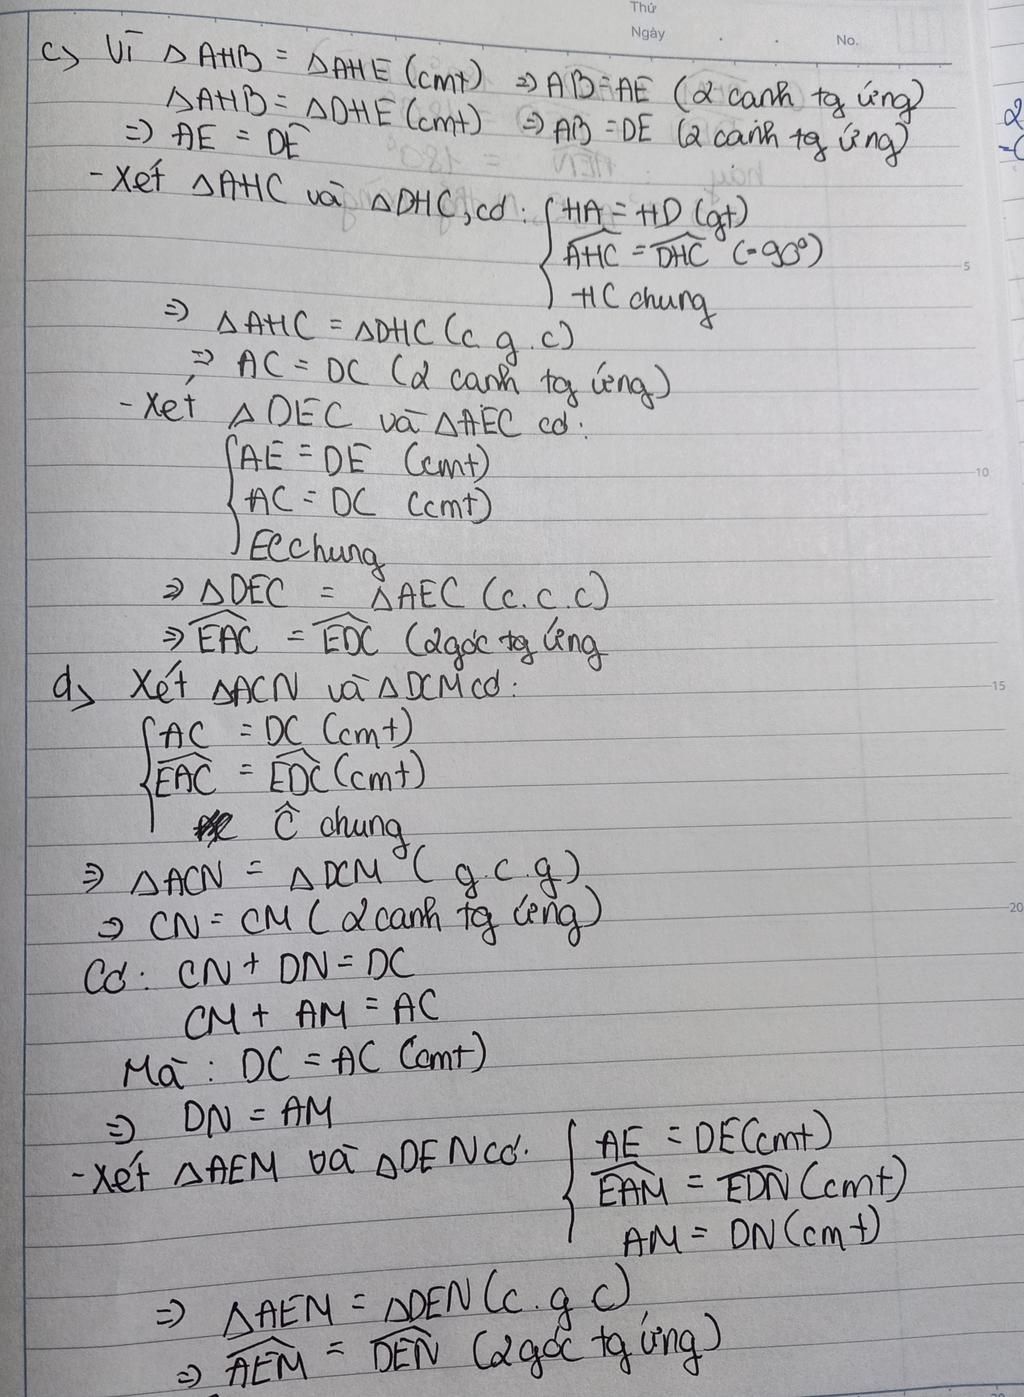 Thứ
Ngày . . No.
c> Vì ΔAHB = ΔAHE (cmt) => AB=AE (2 canh tg ứng)
ΔAHB = ΔDHE (cmt) => AB = DE (2 canh tg ứng)
=> AE = DE
- Xét ΔAHC và ΔDHC, có: { HA = HD (gt)
AHC = DHC (=90°)
HC chung
=> ΔAHC = ΔDHC (c.g.c)
=> AC = DC (2 canh tg ứng)
- Xét ΔDEC và ΔAEC có:
{ AE = DE (cmt)
AC = DC (cmt)
EC chung
=> ΔDEC = ΔAEC (c.c.c)
=> EAC = EDC (2 góc tg ứng
d> Xét ΔACN và ΔDCM có:
{ AC = DC (cmt)
EAC = EDC (cmt)
Ĉ chung
=> ΔACN = ΔDCM (g.c.g)
=> CN = CM (2 canh tg ứng)
Có: CN + DN = DC
CM + AM = AC
Mà : DC = AC (cmt)
=> DN = AM
- Xét ΔAEM và ΔDEN có. { AE = DE (cmt)
EAM = EDN (cmt)
AM = DN (cmt)
=> ΔAEM = ΔDEN (c.g c)
=> AEM = DEN (2 góc tg ứng)
5
10
15
20